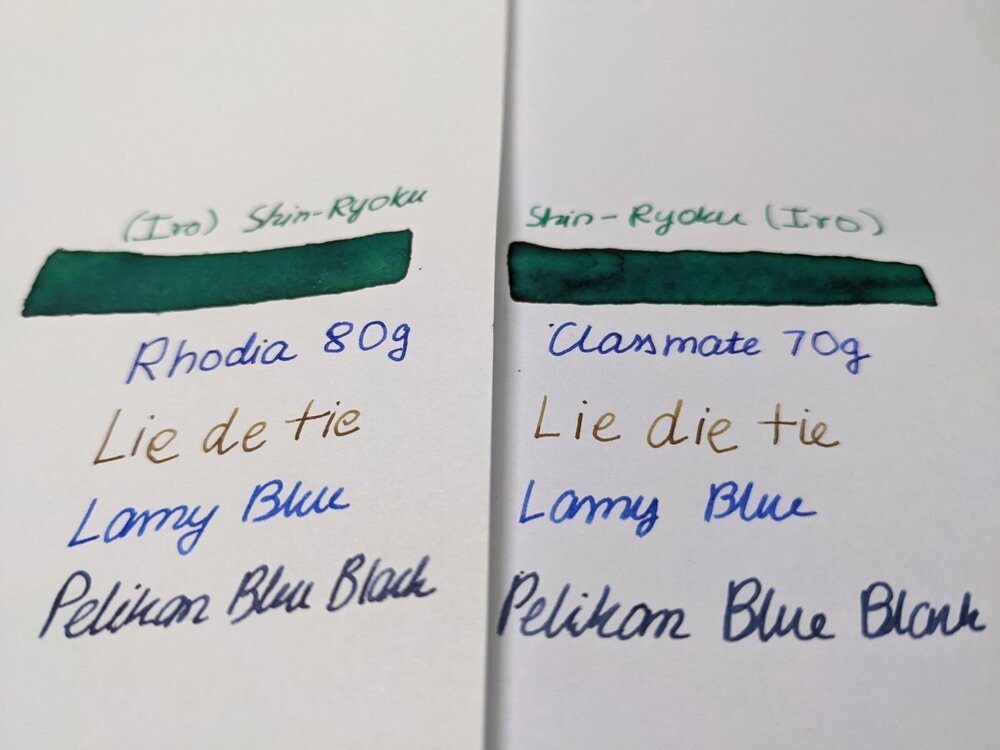 (Iro) Shin-Ryoku
Rhodia 80g
Lie de tie
Lamy Blue
Pelikan Blue Black
Shin-Ryoku (Iro)
Classmate 70g
Lie die tie
Lamy Blue
Pelikan Blue Black